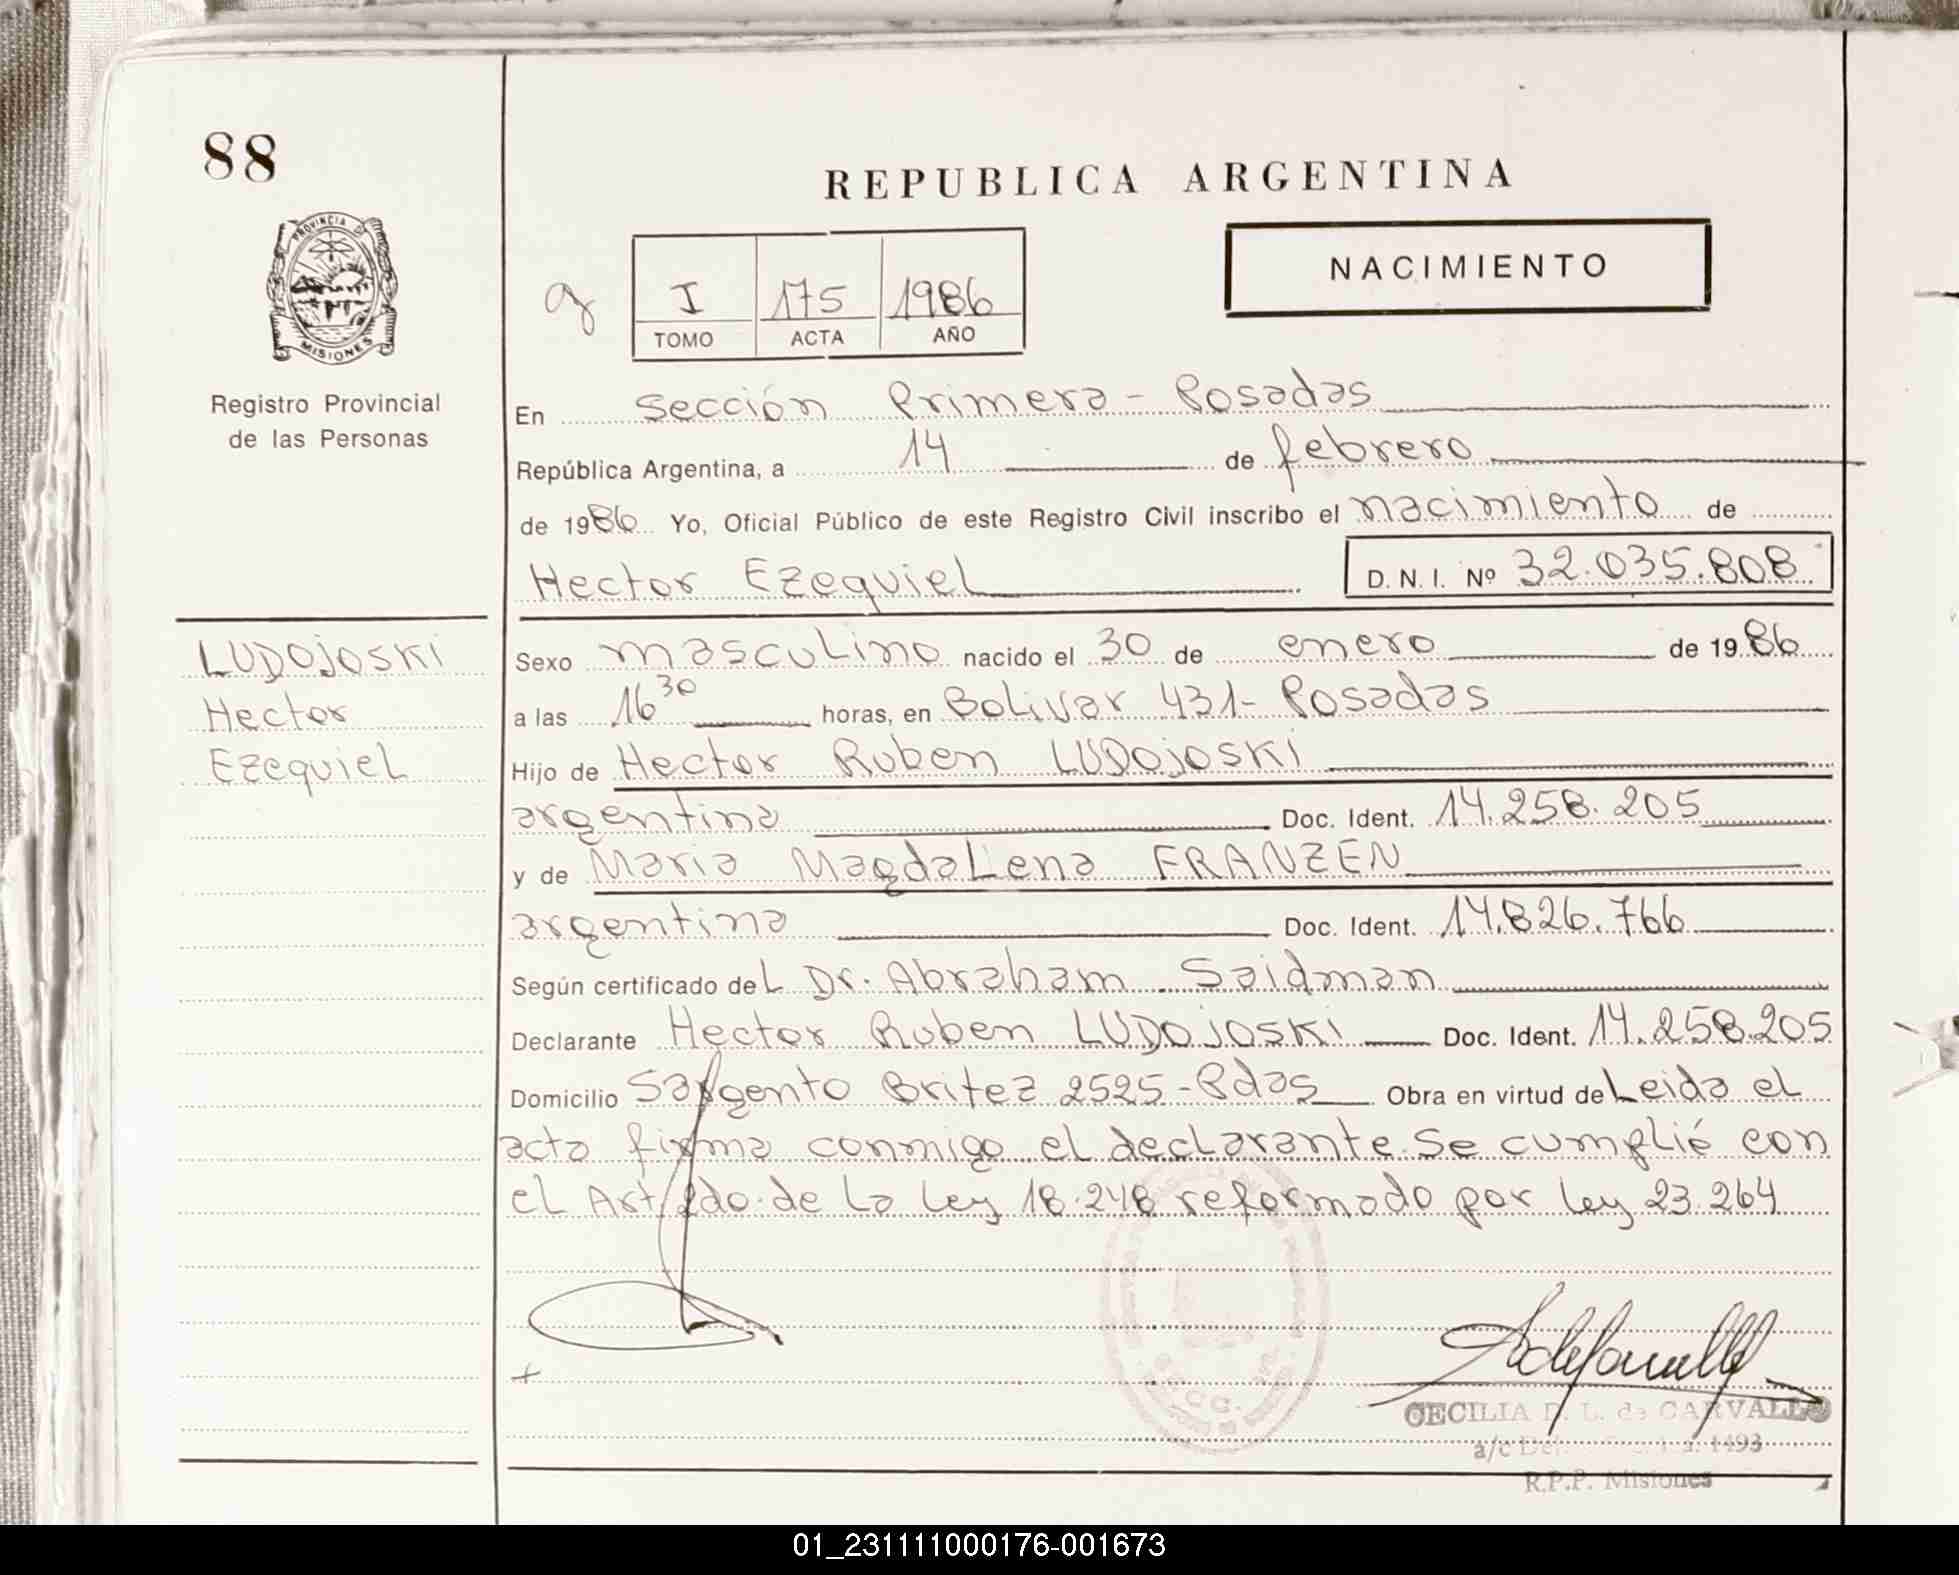 88
REPUBLICA ARGENTINA
PROVINCIA D
MISIONES
Registro Provincial
de las Personas
NACIMIENTO
I 175 1986
TOMO ACTA AÑO
En Sección Primera - Posadas
República Argentina, a 14 de febrero
de 1986 Yo, Oficial Público de este Registro Civil inscribo el nacimiento de
Hector Ezequiel D. N. I. Nº 32.035.808
LUDOJOSKI
Hector
Ezequiel
Sexo masculino nacido el 30 de enero de 1986
a las 16 30 horas, en Bolivar 431- Posadas
Hijo de Hector Ruben LUDOJOSKI
argentina Doc. Ident. 14.258.205
y de Maria Magdalena FRANZEN
argentina Doc. Ident. 14.826.766
Según certificado del Dr. Abraham Saidman
Declarante Hector Ruben LUDOJOSKI Doc. Ident. 14.258.205
Domicilio Sargento Britez 2525-Pdas Obra en virtud de Leida el
acta firma conmigo el declarante. Se cumplié con
el Art 2do. de la ley 18.248 reformado por ley 23.264
CECILIA D. L. de CARVALLO
a/c 1493
R.P.P. Misiones
01_231111000176-001673